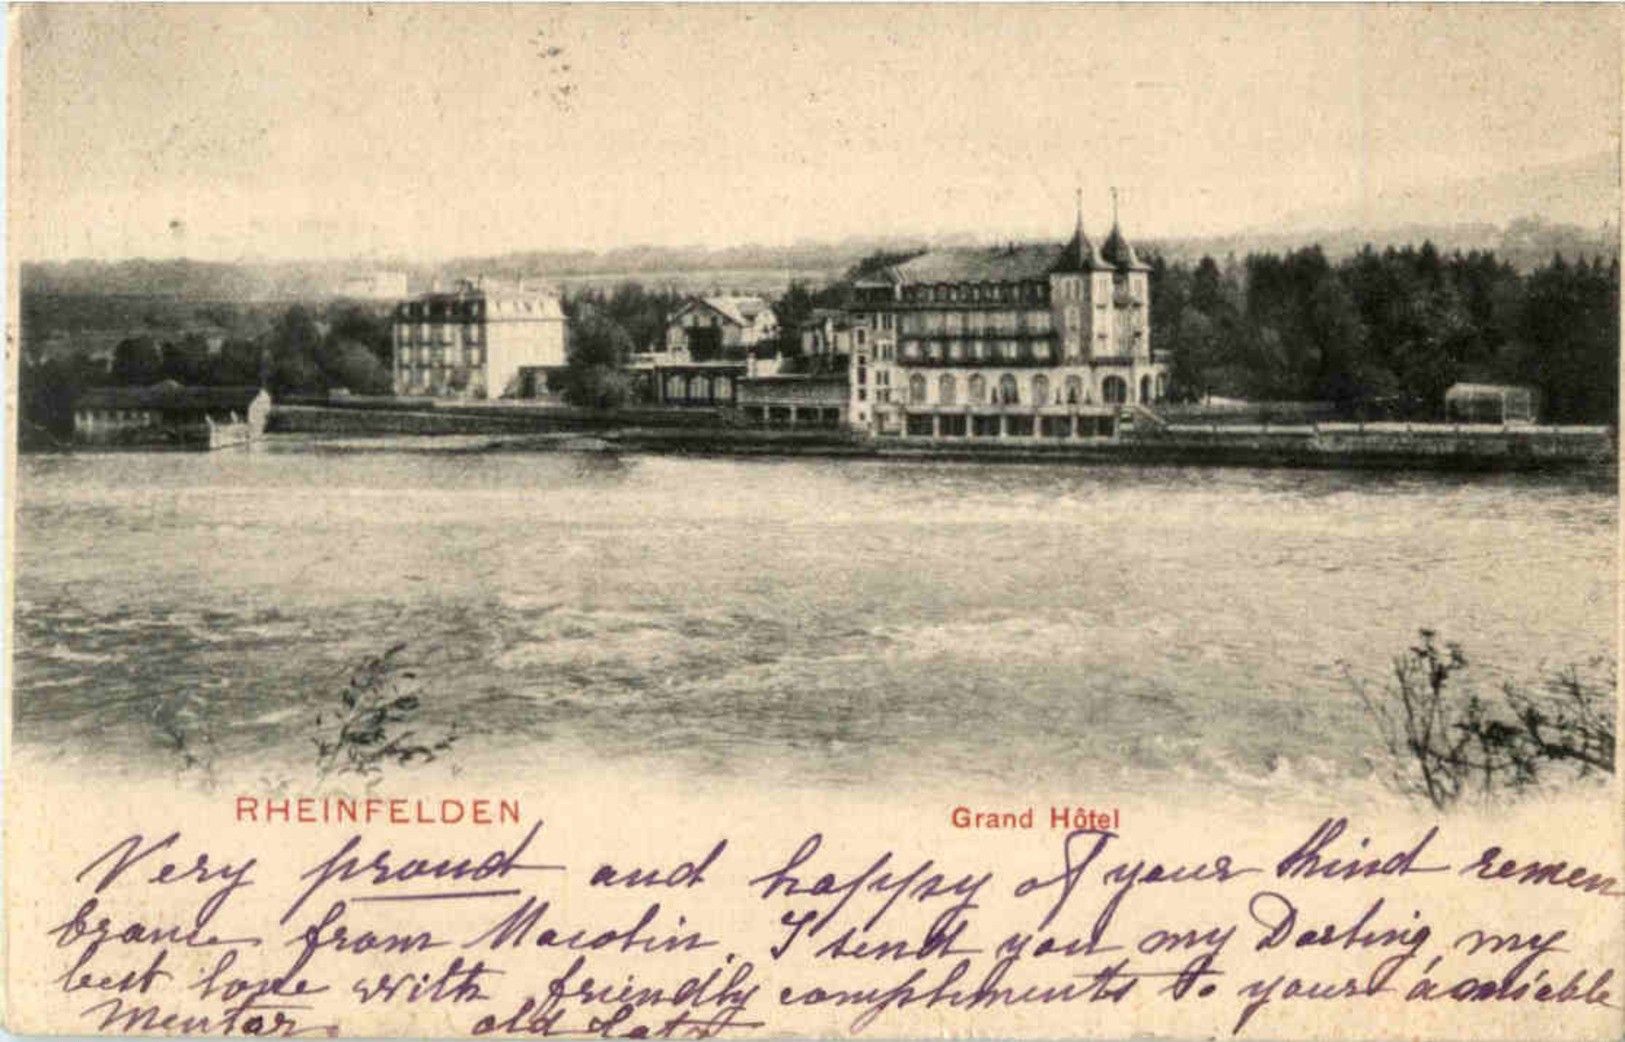 RHEINFELDEN
Grand Hôtel
Very proud and happy of your kind remem
brance from Macolin. I send you my Darling, my
best love with friendly compliments to your amiable
Mentor. old